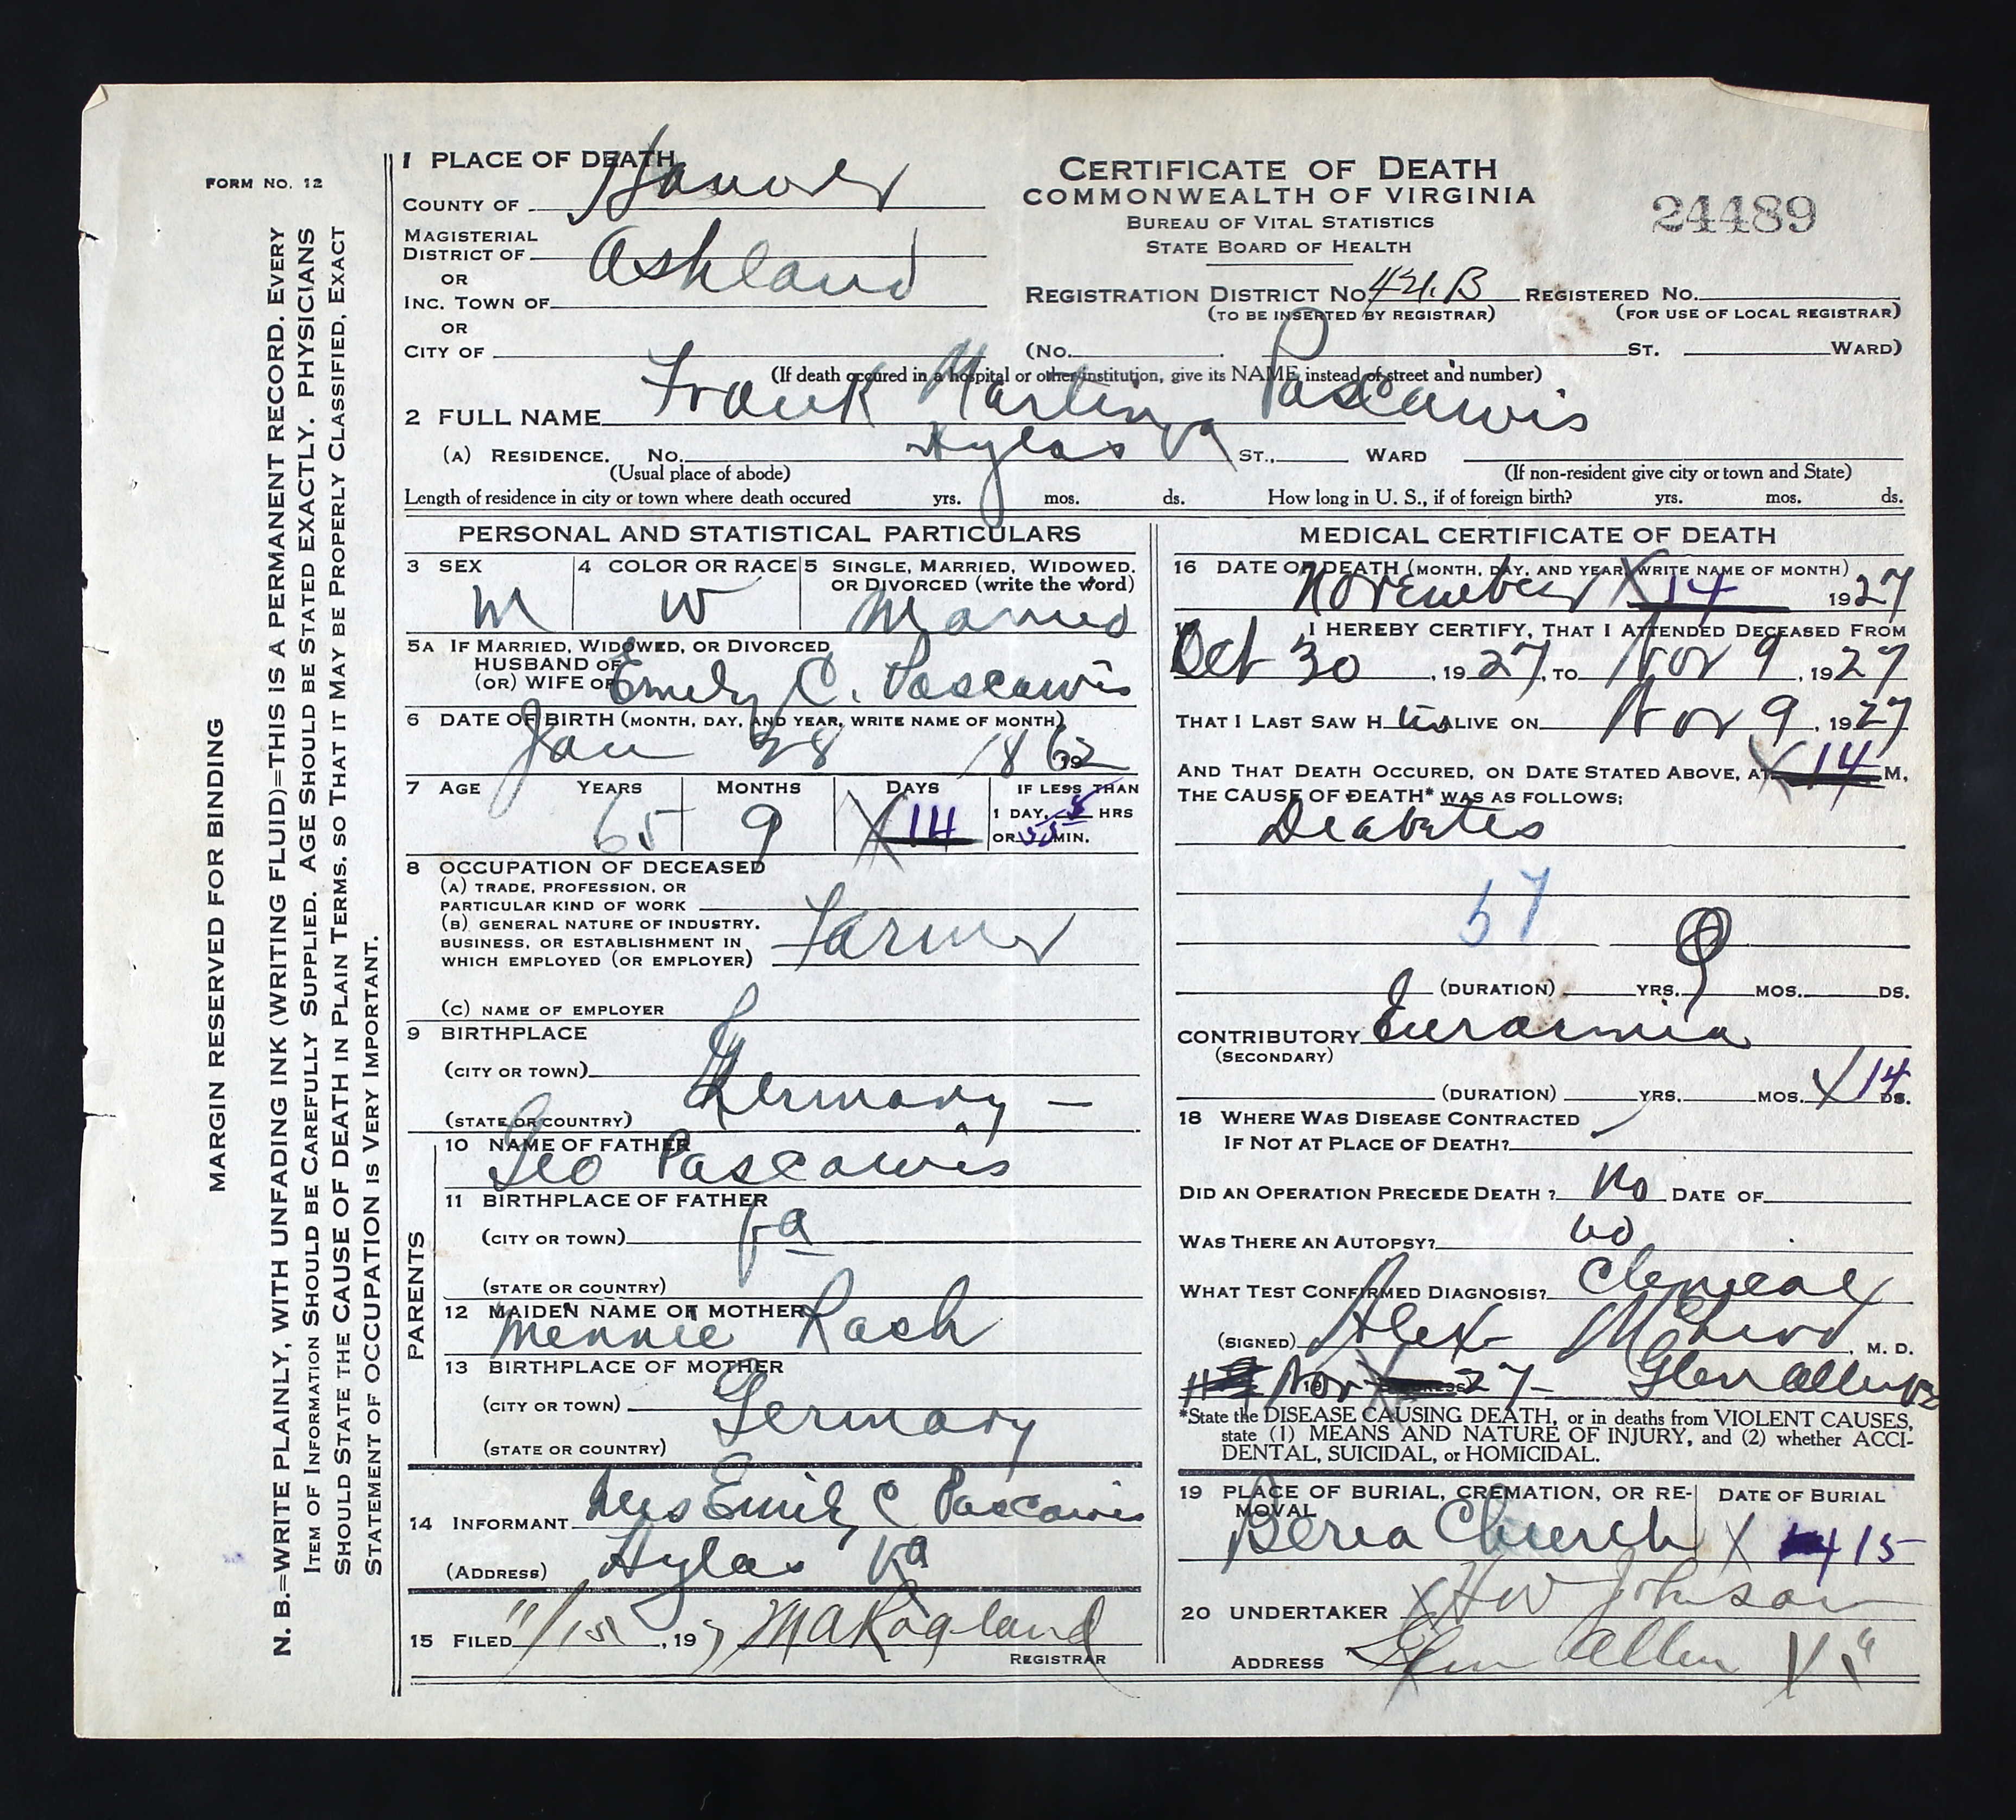 FORM NO. 12
MARGIN RESERVED FOR BINDING
N. B.=WRITE PLAINLY, WITH UNFADING INK (WRITING FLUID)=THIS IS A PERMANENT RECORD. EVERY
ITEM OF INFORMATION SHOULD BE CAREFULLY SUPPLIED. AGE SHOULD BE STATED EXACTLY. PHYSICIANS
SHOULD STATE THE CAUSE OF DEATH IN PLAIN TERMS, SO THAT IT MAY BE PROPERLY CLASSIFIED. EXACT
STATEMENT OF OCCUPATION IS VERY IMPORTANT.
1 PLACE OF DEATH
COUNTY OF Hanover
MAGISTERIAL
DISTRICT OF Ashland
OR
INC. TOWN OF
OR
CITY OF
CERTIFICATE OF DEATH
COMMONWEALTH OF VIRGINIA
BUREAU OF VITAL STATISTICS
STATE BOARD OF HEALTH
24489
REGISTRATION DISTRICT NO. REGISTERED NO.
(TO BE INSERTED BY REGISTRAR) (FOR USE OF LOCAL REGISTRAR)
(No. ST. WARD)
(If death occured in a hospital or other institution, give its NAME instead of street and number)
2 FULL NAME Frank Martin Pascawis
(A) RESIDENCE. No. Hylas Va ST., WARD
(Usual place of abode) (If non-resident give city or town and State)
Length of residence in city or town where death occured yrs. mos. ds. How long in U. S., if of foreign birth? yrs. mos. ds.
PERSONAL AND STATISTICAL PARTICULARS
3 SEX 4 COLOR OR RACE 5 SINGLE, MARRIED, WIDOWED,
OR DIVORCED (write the word)
M W Married
5A IF MARRIED, WIDOWED, OR DIVORCED
HUSBAND OF
(OR) WIFE OF Emily C. Pascawis
6 DATE OF BIRTH (MONTH, DAY, AND YEAR, WRITE NAME OF MONTH)
Jan 28 1862
7 AGE YEARS MONTHS DAYS IF LESS THAN
1 DAY, HRS
OR MIN.
65 9 14
8 OCCUPATION OF DECEASED
(A) TRADE, PROFESSION, OR
PARTICULAR KIND OF WORK
(B) GENERAL NATURE OF INDUSTRY,
BUSINESS, OR ESTABLISHMENT IN
WHICH EMPLOYED (OR EMPLOYER) Farmer
(C) NAME OF EMPLOYER
9 BIRTHPLACE
(CITY OR TOWN)
(STATE OR COUNTRY) Germany —
PARENTS
10 NAME OF FATHER
Geo Pascawis
11 BIRTHPLACE OF FATHER
(CITY OR TOWN) Va
(STATE OR COUNTRY)
12 MAIDEN NAME OF MOTHER
Mennie Rash
13 BIRTHPLACE OF MOTHER
(CITY OR TOWN) Germany
(STATE OR COUNTRY)
14 INFORMANT Mrs Emily C Pascawis
(Address) Hylas Va
15 FILED 11/15, 197 M A Ragland
REGISTRAR
MEDICAL CERTIFICATE OF DEATH
16 DATE OF DEATH (MONTH, DAY, AND YEAR, WRITE NAME OF MONTH)
November X 14 1927
I HEREBY CERTIFY, THAT I ATTENDED DECEASED FROM
Oct 30, 1927, TO Nov 9, 1927
THAT I LAST SAW H im ALIVE ON Nov 9, 1927
AND THAT DEATH OCCURED, ON DATE STATED ABOVE, AT X 14 M.
THE CAUSE OF DEATH* WAS AS FOLLOWS:
Diabetes
57
(DURATION) YRS. MOS. DS.
CONTRIBUTORY
(SECONDARY)
(DURATION) YRS. MOS. X 14 DS.
18 WHERE WAS DISEASE CONTRACTED
IF NOT AT PLACE OF DEATH?
DID AN OPERATION PRECEDE DEATH? No DATE OF
WAS THERE AN AUTOPSY? no
WHAT TEST CONFIRMED DIAGNOSIS? Clinical
(SIGNED) Alex , M. D.
Nov 27 Glen Allen Va
*State the DISEASE CAUSING DEATH, or in deaths from VIOLENT CAUSES,
state (1) MEANS AND NATURE OF INJURY, and (2) whether ACCI-
DENTAL, SUICIDAL, or HOMICIDAL.
19 PLACE OF BURIAL, CREMATION, OR RE-
MOVAL DATE OF BURIAL
Berea Church X 15
20 UNDERTAKER X H W Johnson
ADDRESS Glen Allen Va